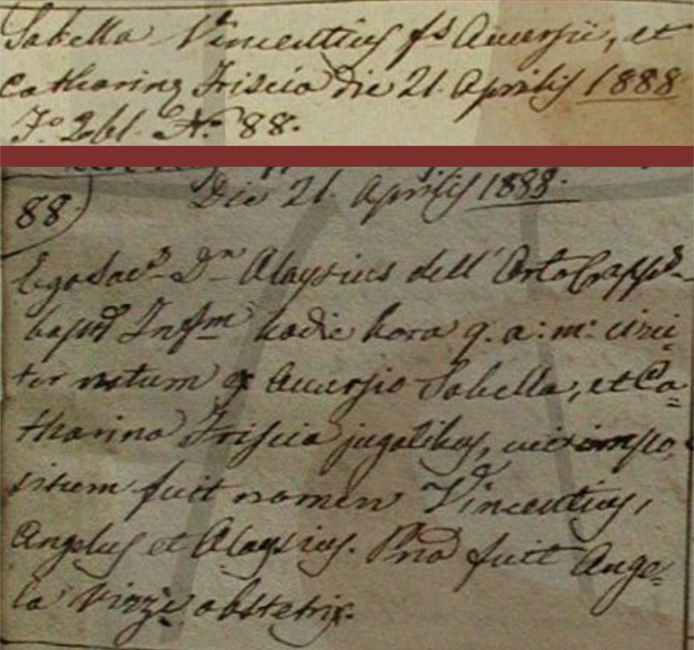 Sabella Vincentius fs Accursii, et
Catharina Friscia Die 21. Aprilis 1888
Fo 261. No 88.
88
Die 21. Aprilis 1888.
Ego Sacs Dn Aloysius dell' Orto Capps
baps Infm hodie hora 9. a: m: circi
ter natum ex Accursio Sabella, et Ca=
tharina Friscia jugalibus, cui impo
situm fuit nomen Vincentius,
Angelus et Aloysius. Pna fuit Ange=
la Virzi obstetrix.